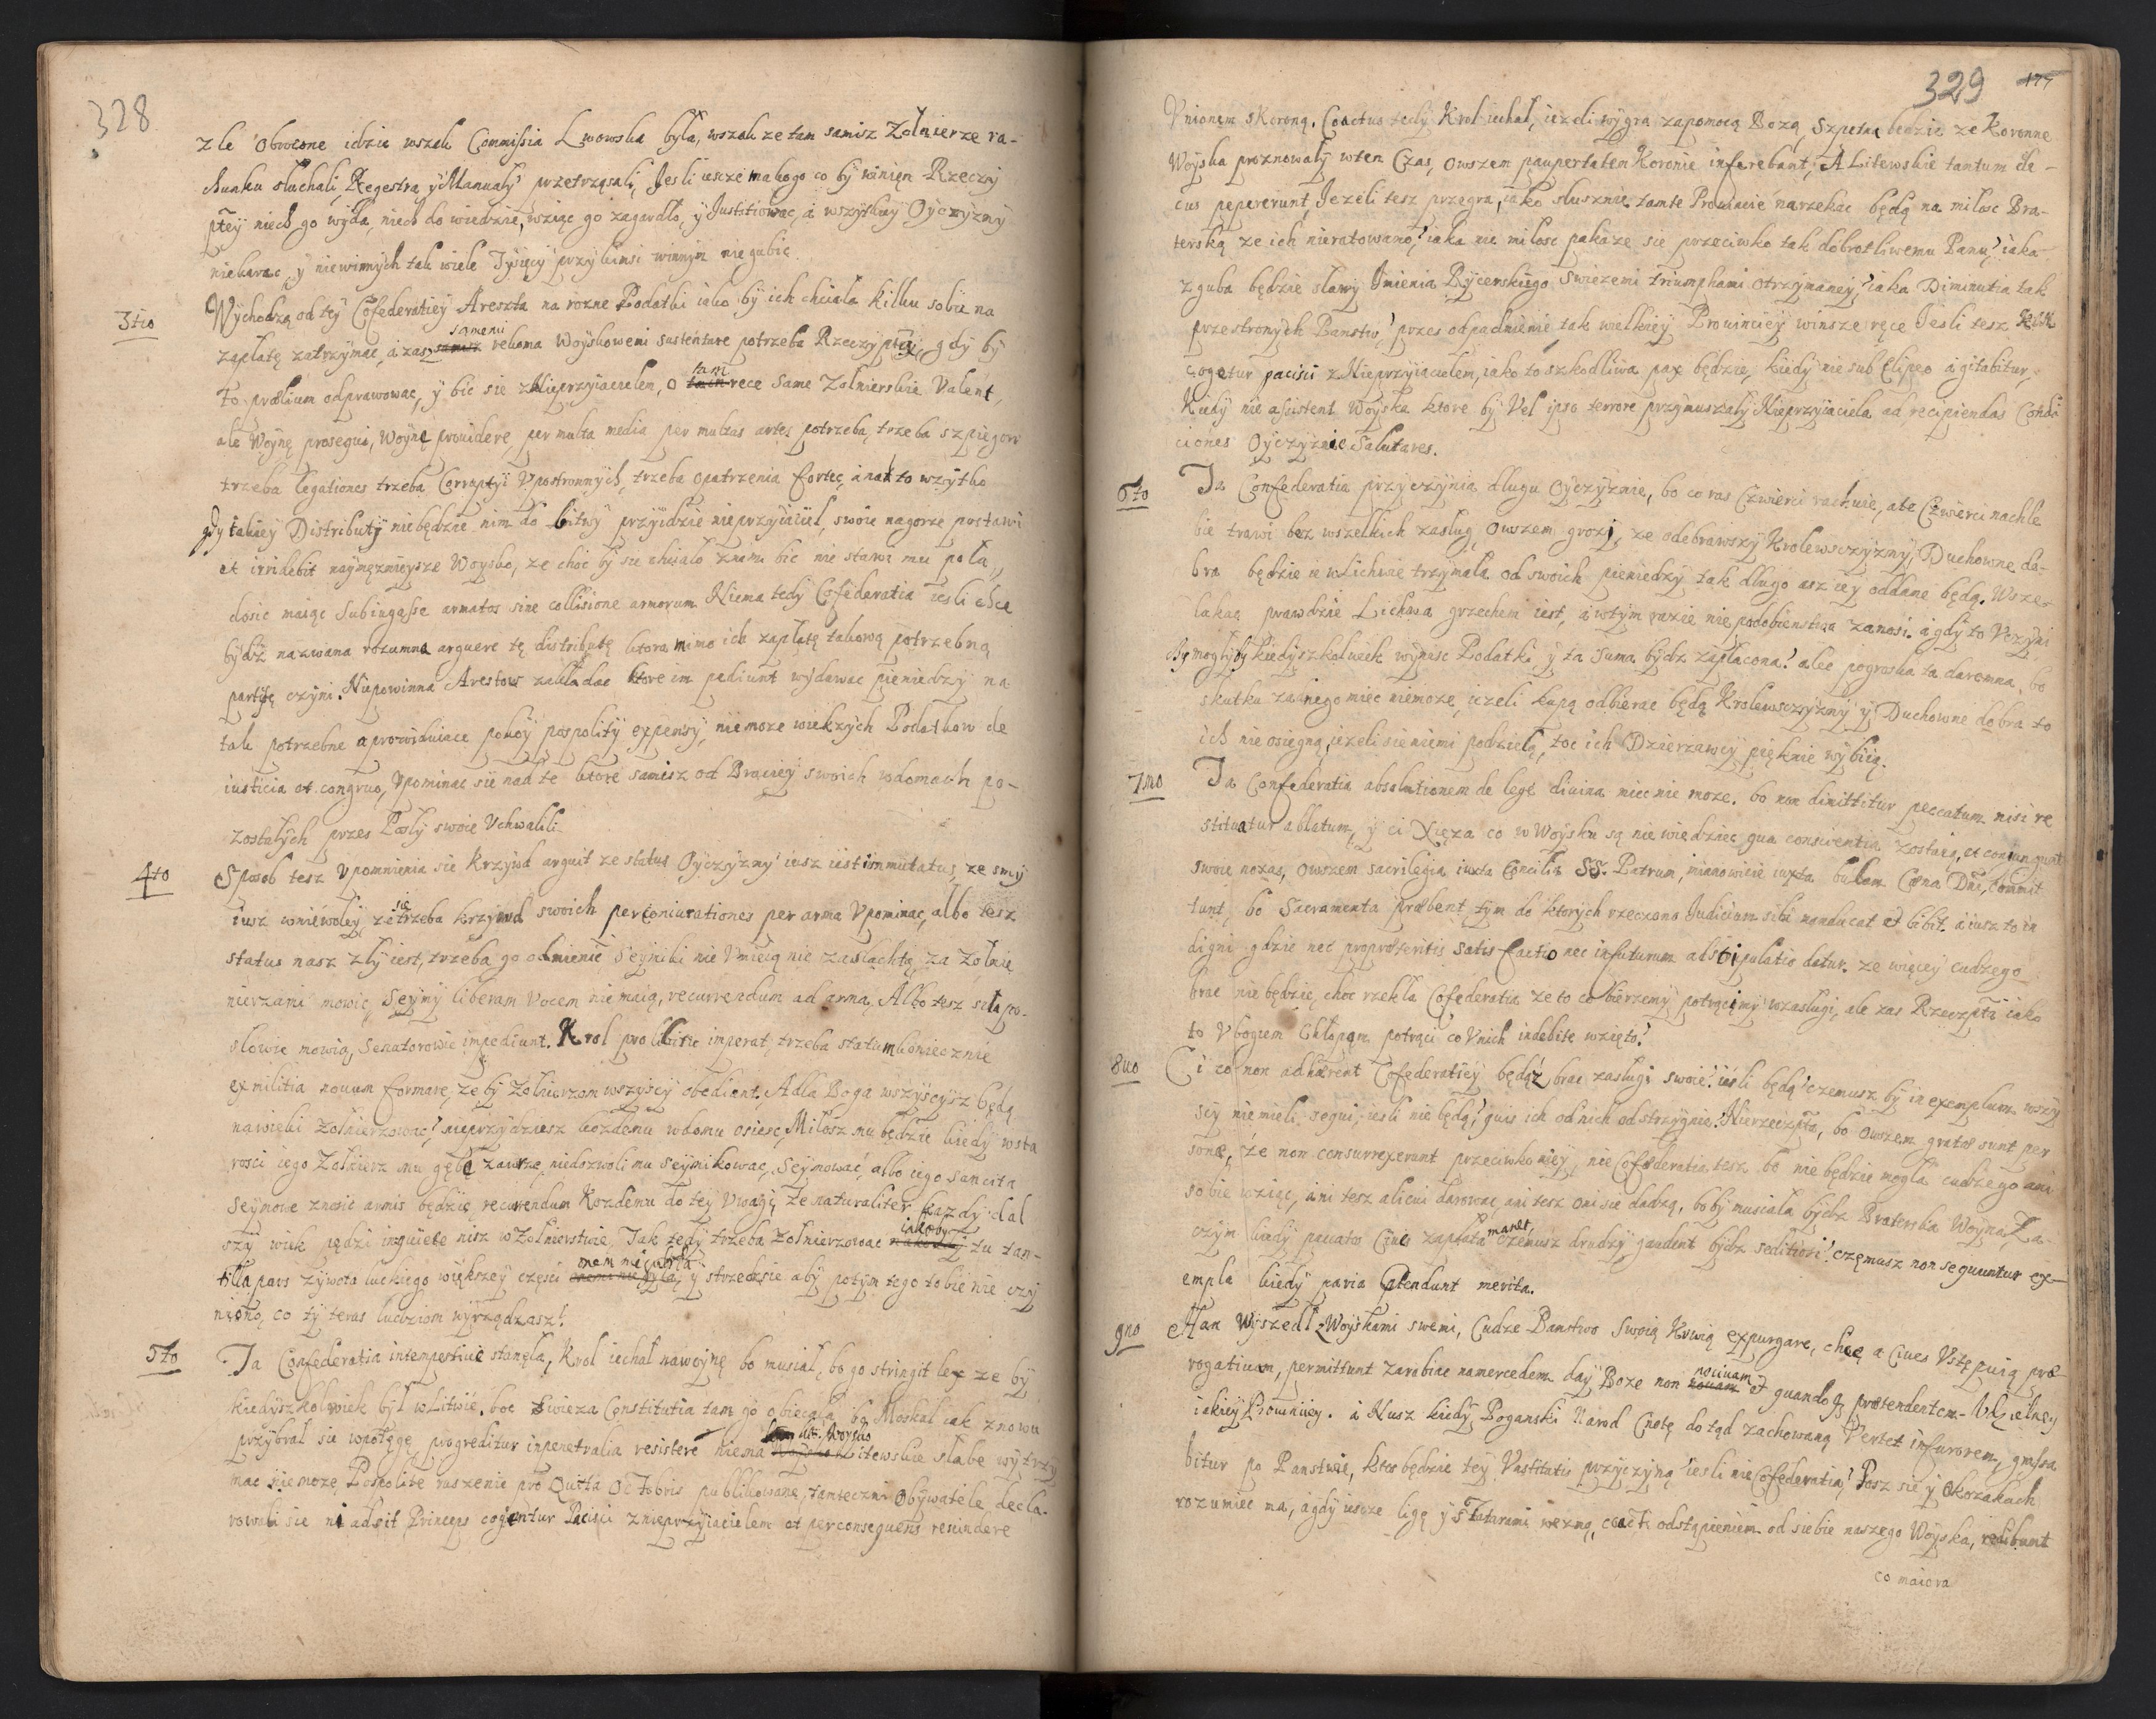 328
zle obrocone idzie wszak Commissia Lwowska była, wszak ze tam samisz Zołnierze ra-
chunku słuchali, Regestra y Manuały przetrząsali, Jesli iescze makogo co by winięn Rzeczy
ptey niech go wyda, niech do wiedzie, wziąc go zagardło, y Justitiowac, a wszytkiey Oyczyzny
niekarac, y niewinnych tak wiele Tysięcy przy kimsi winnym niegubic.
3tio Wychodzą od tey Cofederatiey Areszta na rozne Podatki iako by ich chciała kilku sobie na
zapłatę zatrzymac, a zas samemi rekoma Woyskowemi sustentare potrzeba Rzeczyptą, gdy by
to prœlium odprawowac, y bic sie z Nieprzyiacielem, o tam rece same Zolnierskie Valent,
ale Woynę prosequi, Woynę prouidere, per multa media per multas artes potrzeba, trzeba szpiegow
trzeba legationes trzeba Corruptyi Vpostronnych, trzeba opatrzenia fortec, a nato wszytko
gdy takiey Distributy niebędzie nim do bitwy przyidzie nieprzyiaciel, swoie nagorze postawi
et irridebit naymęznieysze Woysko, ze choc by sie chciało znim bic nie stawi mu pola,
dosic maiąc subiugasse armatos sine collisione armorum. Niema tedy Cofederatia iesli chce
bydz nazwana rozumna arguere tę distributę ktora mimo ich zapłatę takową potrzebną
partytę czyni. Niepowinna Arestow zakładac ktore im pediunt wydawac pieniedzy na
tak potrzebne aprowiduiace pokoy pospolity expensy, niemoze wiekszych Podatkow de
iusticia et congruo, Vpominac sie nad te ktore samisz od Braciey swoich wdomach po-
zostałych przes Posły swoie Vchwalili.
4to Sposob tesz Vpomnienia sie krzywd arguit ze status Oyczyzny iusz iest immutatus, ze smy
iusz wniewoley, ze sie trzeba krzywd swoich per coniurationes per arma Vpominac, albo tesz
status nasz zły iest, trzeba go odmienic Seymiki nie Vmieią nic zaslachtą za Zolnię
nierzami mowic, Seymy liberam Vocem nie maią, recurrendum ad arma, Albo tesz siła po-
slowie mowią, Senatorowie impediunt. Krol pro libitu imperat, trzeba statum koniecznie
ex militia nouum formare, ze by Zolnierzom wszyscy obediant. Adla Boga wszyscysz będą
nawieki Zolnierzowac? nieprzydziesz kozdemu wdomu osiesc, Miłosz mu będzie kiedy wsta
rosci iego Zolnierz mu gębę zawrze, niedozwoli mu Seymikowac, Seymowac, albo iego sancita
seymowe znosic armis będzie recurendum Kozdemu do tey Vwagi, Ze naturaliter kazdy dal
szy wiek pędzi inquiete nisz w Zolnierstwie, Tak tedy trzeba Zolnierzowac iakoby tu tan-
tilla pars zywota ludzkiego większey części mem nie była y strzedzsie aby potym tego tobie nie czy
niono, co ty teras ludziom wyrządzasz?
5to Ta Confederatia intempestiuè stanęła, Krol iechał nawoynę bo musiał, bo go stringit lex ze by
kiedyszkolwiek był w Litwie, boc swieza Constitutia tam go obiecała bo Moskal iak znowu
przybrał sie wpotęgę, progreditur inpenetralia resistere niema Woysko Litewskie słabe wytrzy
mac niemoze, Pospolite ruszenie pro Quita Octobris publikowane, tameczni Obywatele decla-
rowali sie ni adsit Princeps cogentur Pacisci z nieprzyiacielem et perconsequens rescindere
329 177
Vnionem s Koroną. Coactus tedy Krol iechał, iezeli wygra zapomocą Bozą, Szpetna bedzie ze Koronne
Woyska proznowały wten Czas, owszem paupertatem Koronie inferebant, A Litewskie tantum de-
cus pepererunt, Jezeli tesz przegra, iako słusznie tamte Prouincie narzekac będą na miłosc Bra-
terską ze ich nieratowano? iaka nie miłosc pokaze sie przeciwko tak dobrotliwemu Panu? iaka
zguba będzie sławy Jmienia Rycerskiego swiezemi triumphami otrzymaney? iaka Diminutia tak
przestronych Panstw? przes odpadnienie tak wielkiey Prouinciey winsze ręce Jesli tesz
cogetur pacisci z Nieprzyiacielem, iako to szkodliwa pax będzie, kiedy nie sub Clipeo agitabitur,
Kiedy nie assistent Woyska ktore by Vel ipso terrore przymuszały Nieprzyiaciela ad recipiendas Condi
ciones Oyczyznie Salutares.
6to Ta Confederatia przyczynia długu Oyczyznie, bo co ras Czwierci rachuie, a te Czwierci nachle
bie trawi bez wszelkich zasług, owszem grozi, ze odebrawszy Krolewsczyzny, Duchowne do-
bra będzie ie wLichwie trzymała od swoich pieniedzy tak długo asz iey oddane będą. Wsze-
laka prawdzie Lichwa grzechem iest, a wtym razie nie podobienstwa zanosi. a gdy to Vczyni
chy mogłyby kiedyszkolwiek wynisc Podatki, y ta suma bydz zapłacona? alec pogroska ta daremna, bo
skutku zadnego miec niemoze, iezeli kupą odbierac będą Krolewsczyzny y Duchowne dobra to
ich nie osiegną, iezeli sie niemi podzielą, toc ich Dzierzawcy pięknie wybiią.
7mo Ta Confederatia absolutionem de lege diuina miec nie moze. bo non dimittitur peccatum nisi re
stituatur ablatum, y ci Xięza co w Woysku są nie wiedziec qua conscientia zostaią, et coniungunt
swoie noxas, owszem sacrilegia iuxta Concilia SS. Patrum, mianowicie iuxta bullam Cœna Dñi, Commit
tunt, bo Sacramenta præbent, tym do ktorych rzeczono Judicium sibi manducat et bibit. a iusz to in
digni gdzie nec propræteritis satis factio nec infuturum adstipulatio datur. ze więcey cudzego
brac nie będzie, choc rzekła Cofederatia ze to co bierzemy potrącimy wzasługi, ale zas Rzeczpta iako
to Vbogiem Chłopom potrąci co Vnich indebite wzięto?
8uo Ci co non adhærent Cofederatiey będąz brac zasługi swoie? iesli będą? czemusz by in exemplum wszy
scy nie mieli sequi, iesli nie będą? quis ich od nich odstrzygnie? Nierzeczpta, bo owszem gratæ sunt per
sonæ, że non consurrexerunt przeciwko niey, nie Cofœderatia tesz bo nie będzie mogła cudzego ani
sobie wziąc, ani tesz alicui darowac, ani tesz oni sie dadzą, boby musiała bydz Braterska Woyna, Za
czym kiedy pacatos Ciues zapłata manet, czemusz drudzy gaudent bydz seditiosi? czemusz non sequuntur ex-
empla kiedy paria Attendunt merita.
9no Pan Wyszedł z Woyskami swemi, Cudze Panstwo swoią Krwią expurgare, chcę a Ciues Vstępuią præ-
rogatiuam, permittunt zarabiac namercedem day Boze non nociuam et quandoq3 prœtendentem Vdzielney
iakiey Prowinciey. a Nusz kiedy Poganski Narod Cnotę do tąd zachowaną Vertet infurorem, grassa
bitur po Panstwie, ktos będzie tey Vastitatis przyczyną iesli nie Cofederatia? Tosz sie y Okozakach
rozumiec ma, a gdy iescze ligę y s Tatarami wezmą, coacti odstąpieniem od siebie naszego Woyska, redibunt
co maiora